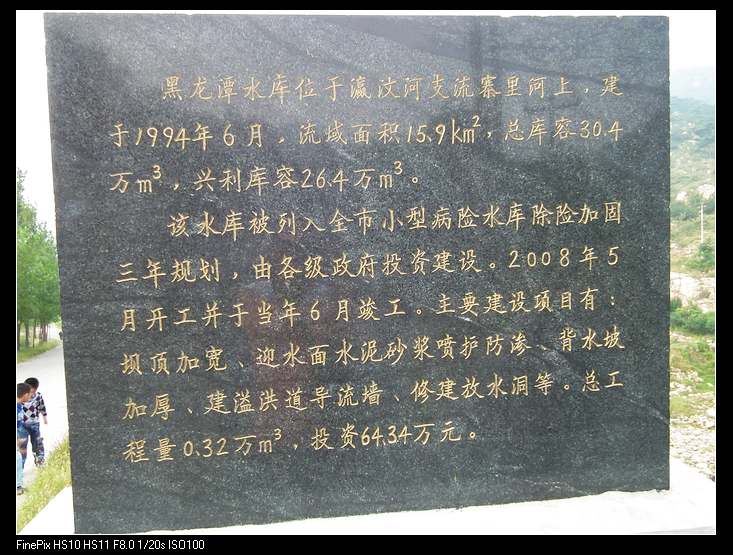 黑龙潭水库位于瀛汶河支流寨里河上，建
于1994年6月，流域面积15.9km²，总库容30.4
万m³，兴利库容26.4万m³。
该水库被列入全市小型病险水库除险加固
三年规划，由各级政府投资建设。2008年5
月开工并于当年6月竣工。主要建设项目有：
坝顶加宽、迎水面水泥砂浆喷护防渗、背水坡
加厚、建溢洪道导流墙、修建放水洞等。总工
程量0.32万m³，投资64.34万元。
FinePix HS10 HS11 F8.0 1/20s ISO100